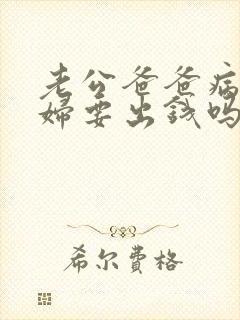 老公爸爸病
婦要出錢嗎
希尔費格